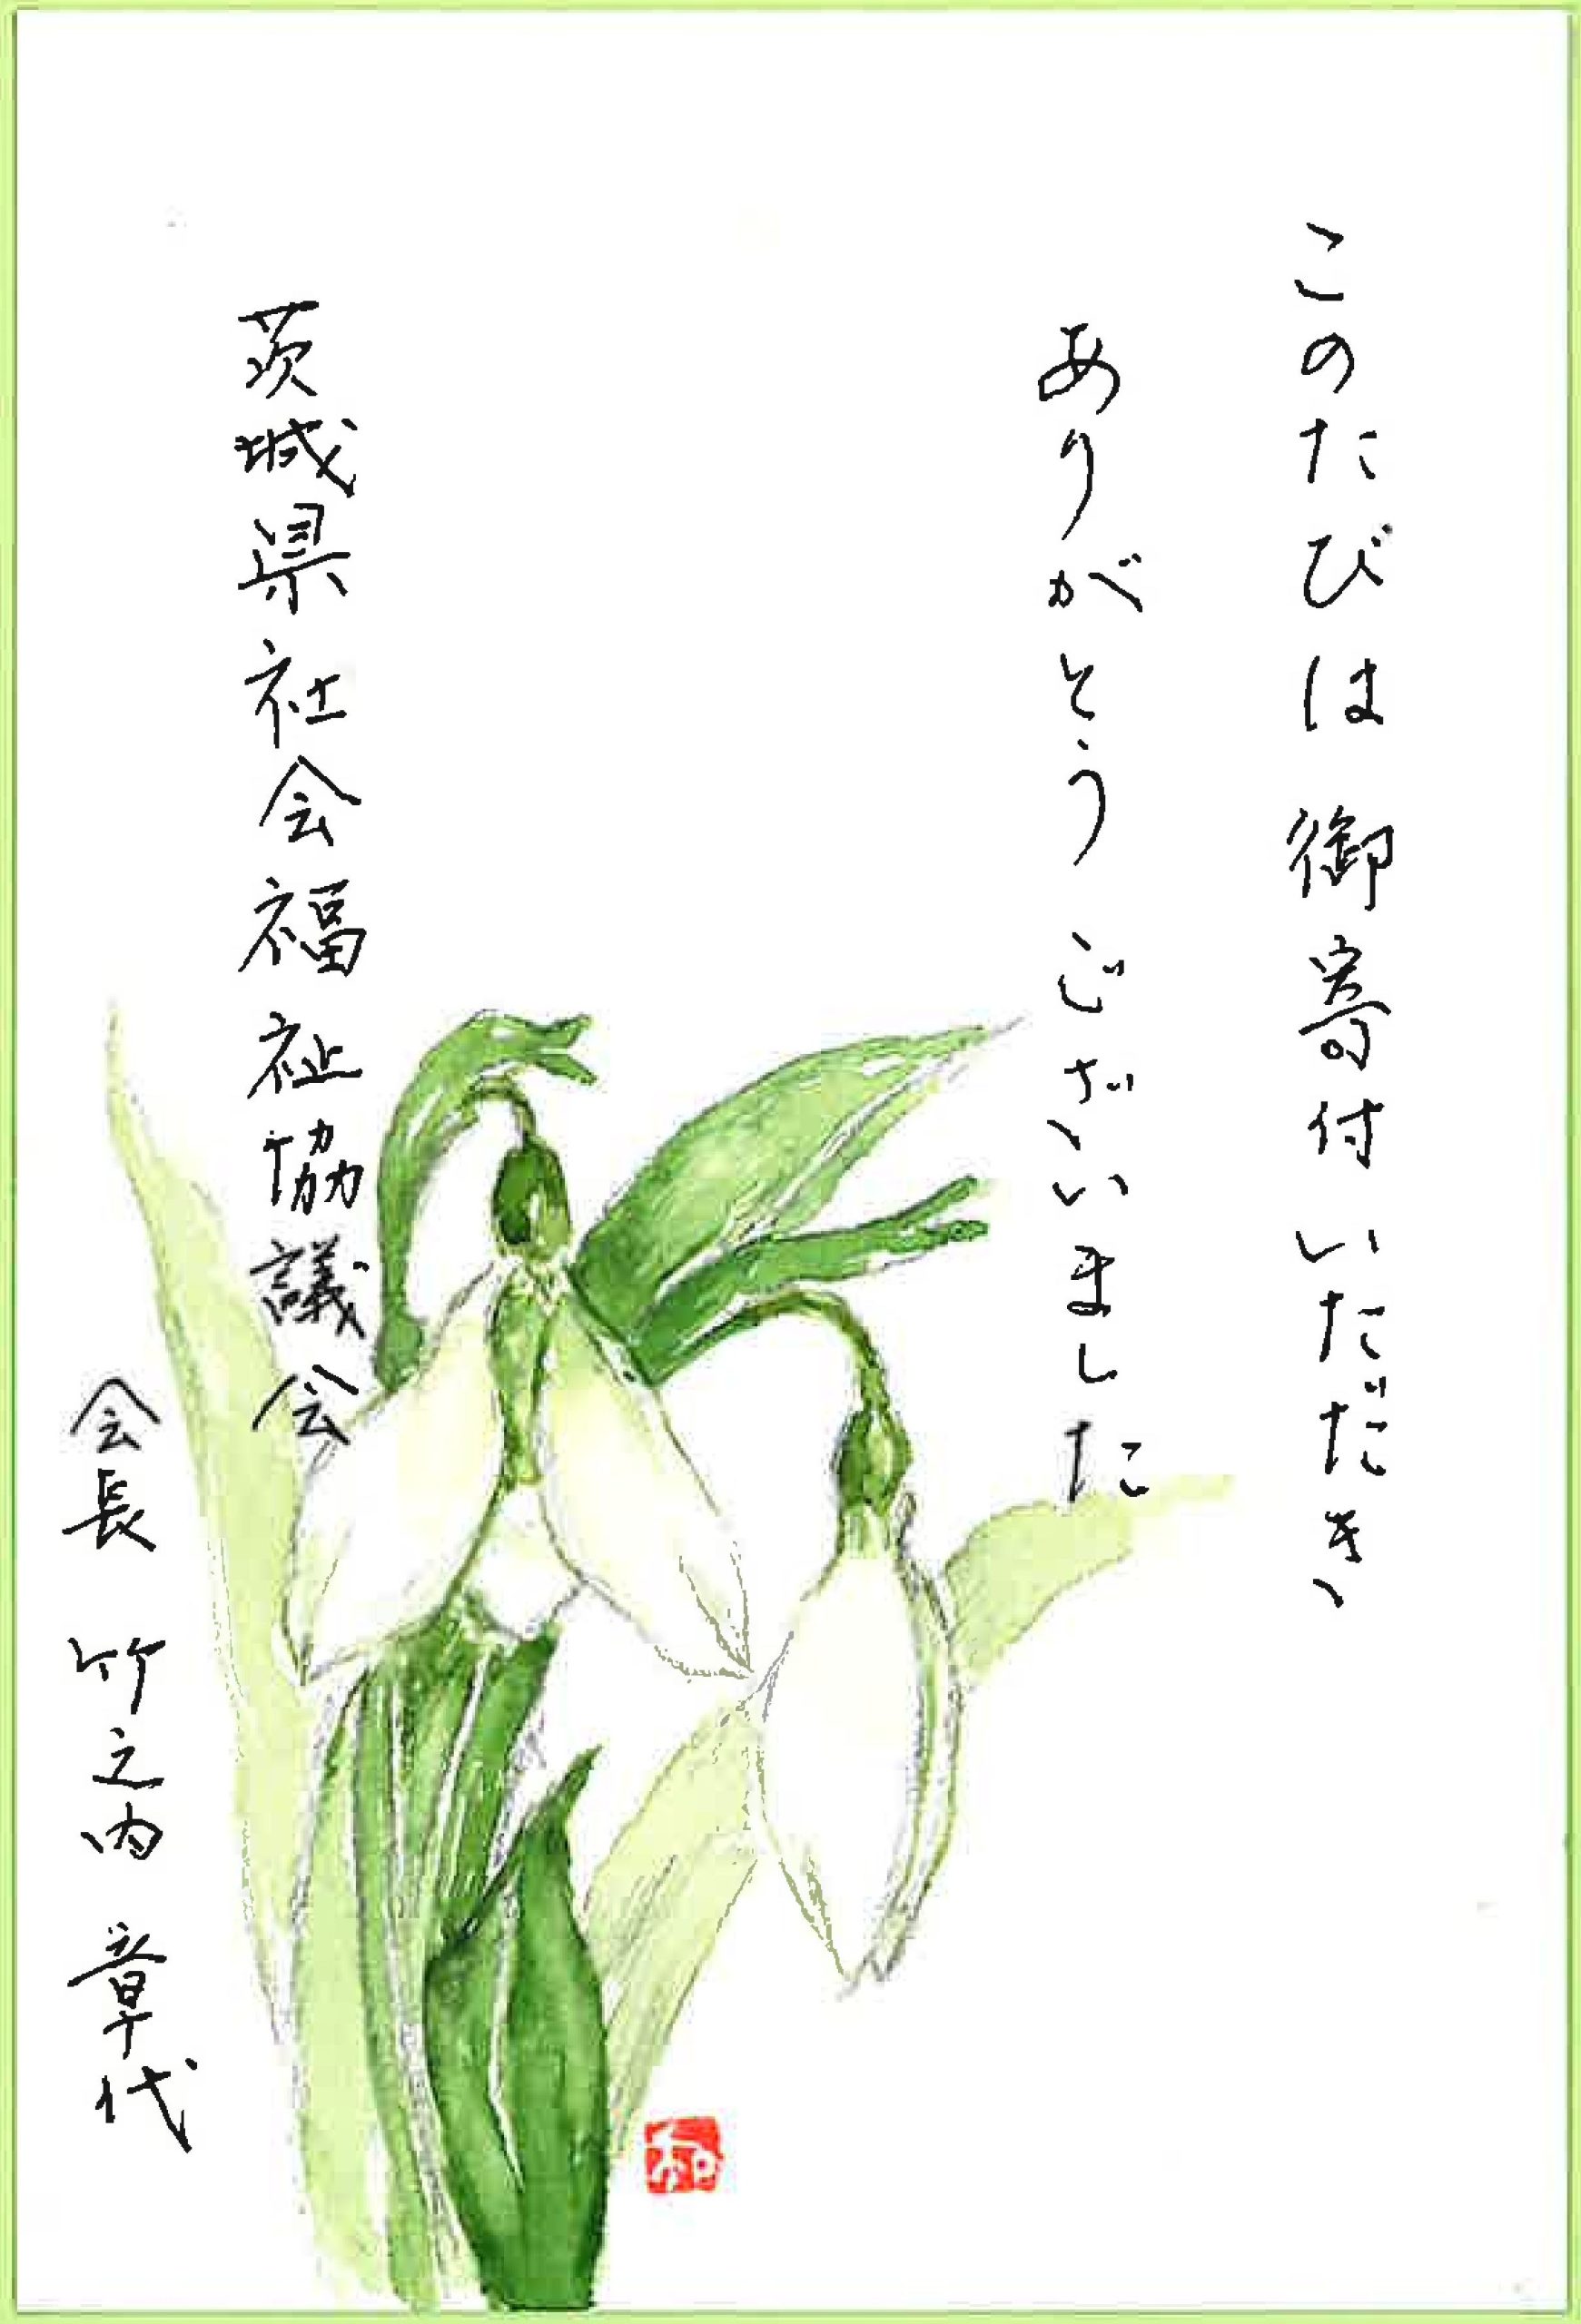 このたびは御寄付いただき
ありがとうございました
茨城県社会福祉協議会
会長 竹之内章代
和